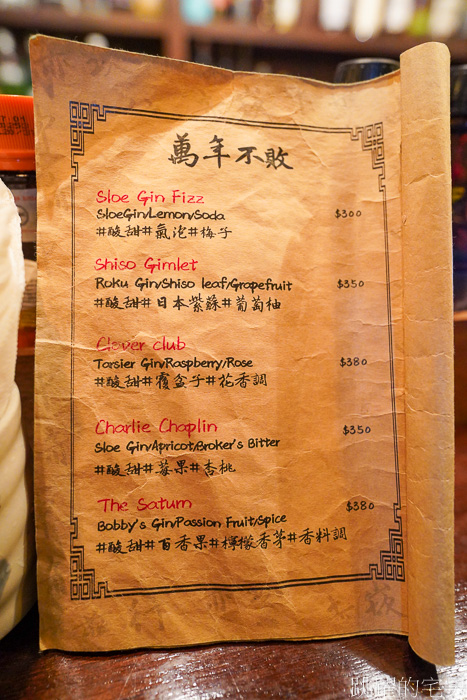 萬年不敗
Sloe Gin Fizz
SloeGin/Lemon/Soda $300
#酸甜#氣泡#梅子
Shiso Gimlet
Roku Gin/Shiso leaf/Grapefruit $350
#酸甜#日本紫蘇#葡萄柚
Clover club
Tarsier Gin/Raspberry/Rose $380
#酸甜#覆盆子#花香調
Charlie Chaplin $350
Sloe Gin/Apricot/Broker's Bitter
#酸甜#莓果#杏桃
The Saturn $380
Bobby's Gin/Passion Fruit/Spice
#酸甜#百香果#檸檬香茅#香料調